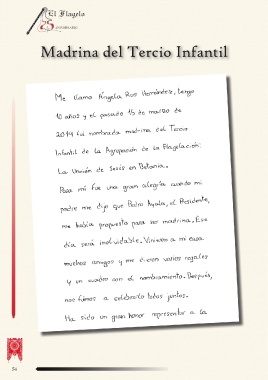 El Flagelo
25 ANIVERSARIO
Madrina del Tercio Infantil
Me llamo Ángela Ros Hernández, tengo
10 años y el pasado 15 de marzo de
2014 fui nombrada madrina del Tercio
Infantil de la Agrupación de la Flagelación:
La Unción de Jesús en Betania.
Para mí fue una gran alegría cuando mi
padre me dijo que Pedro Ayala, el Presidente,
me había propuesto para ser madrina. Ese
día será inolvidable. Vinieron a mi casa
muchos amigos y me dieron varios regalos
y un cuadro con el nombramiento. Después,
nos fuimos a celebrarlo todos juntos.
Ha sido un gran honor representar a la
54